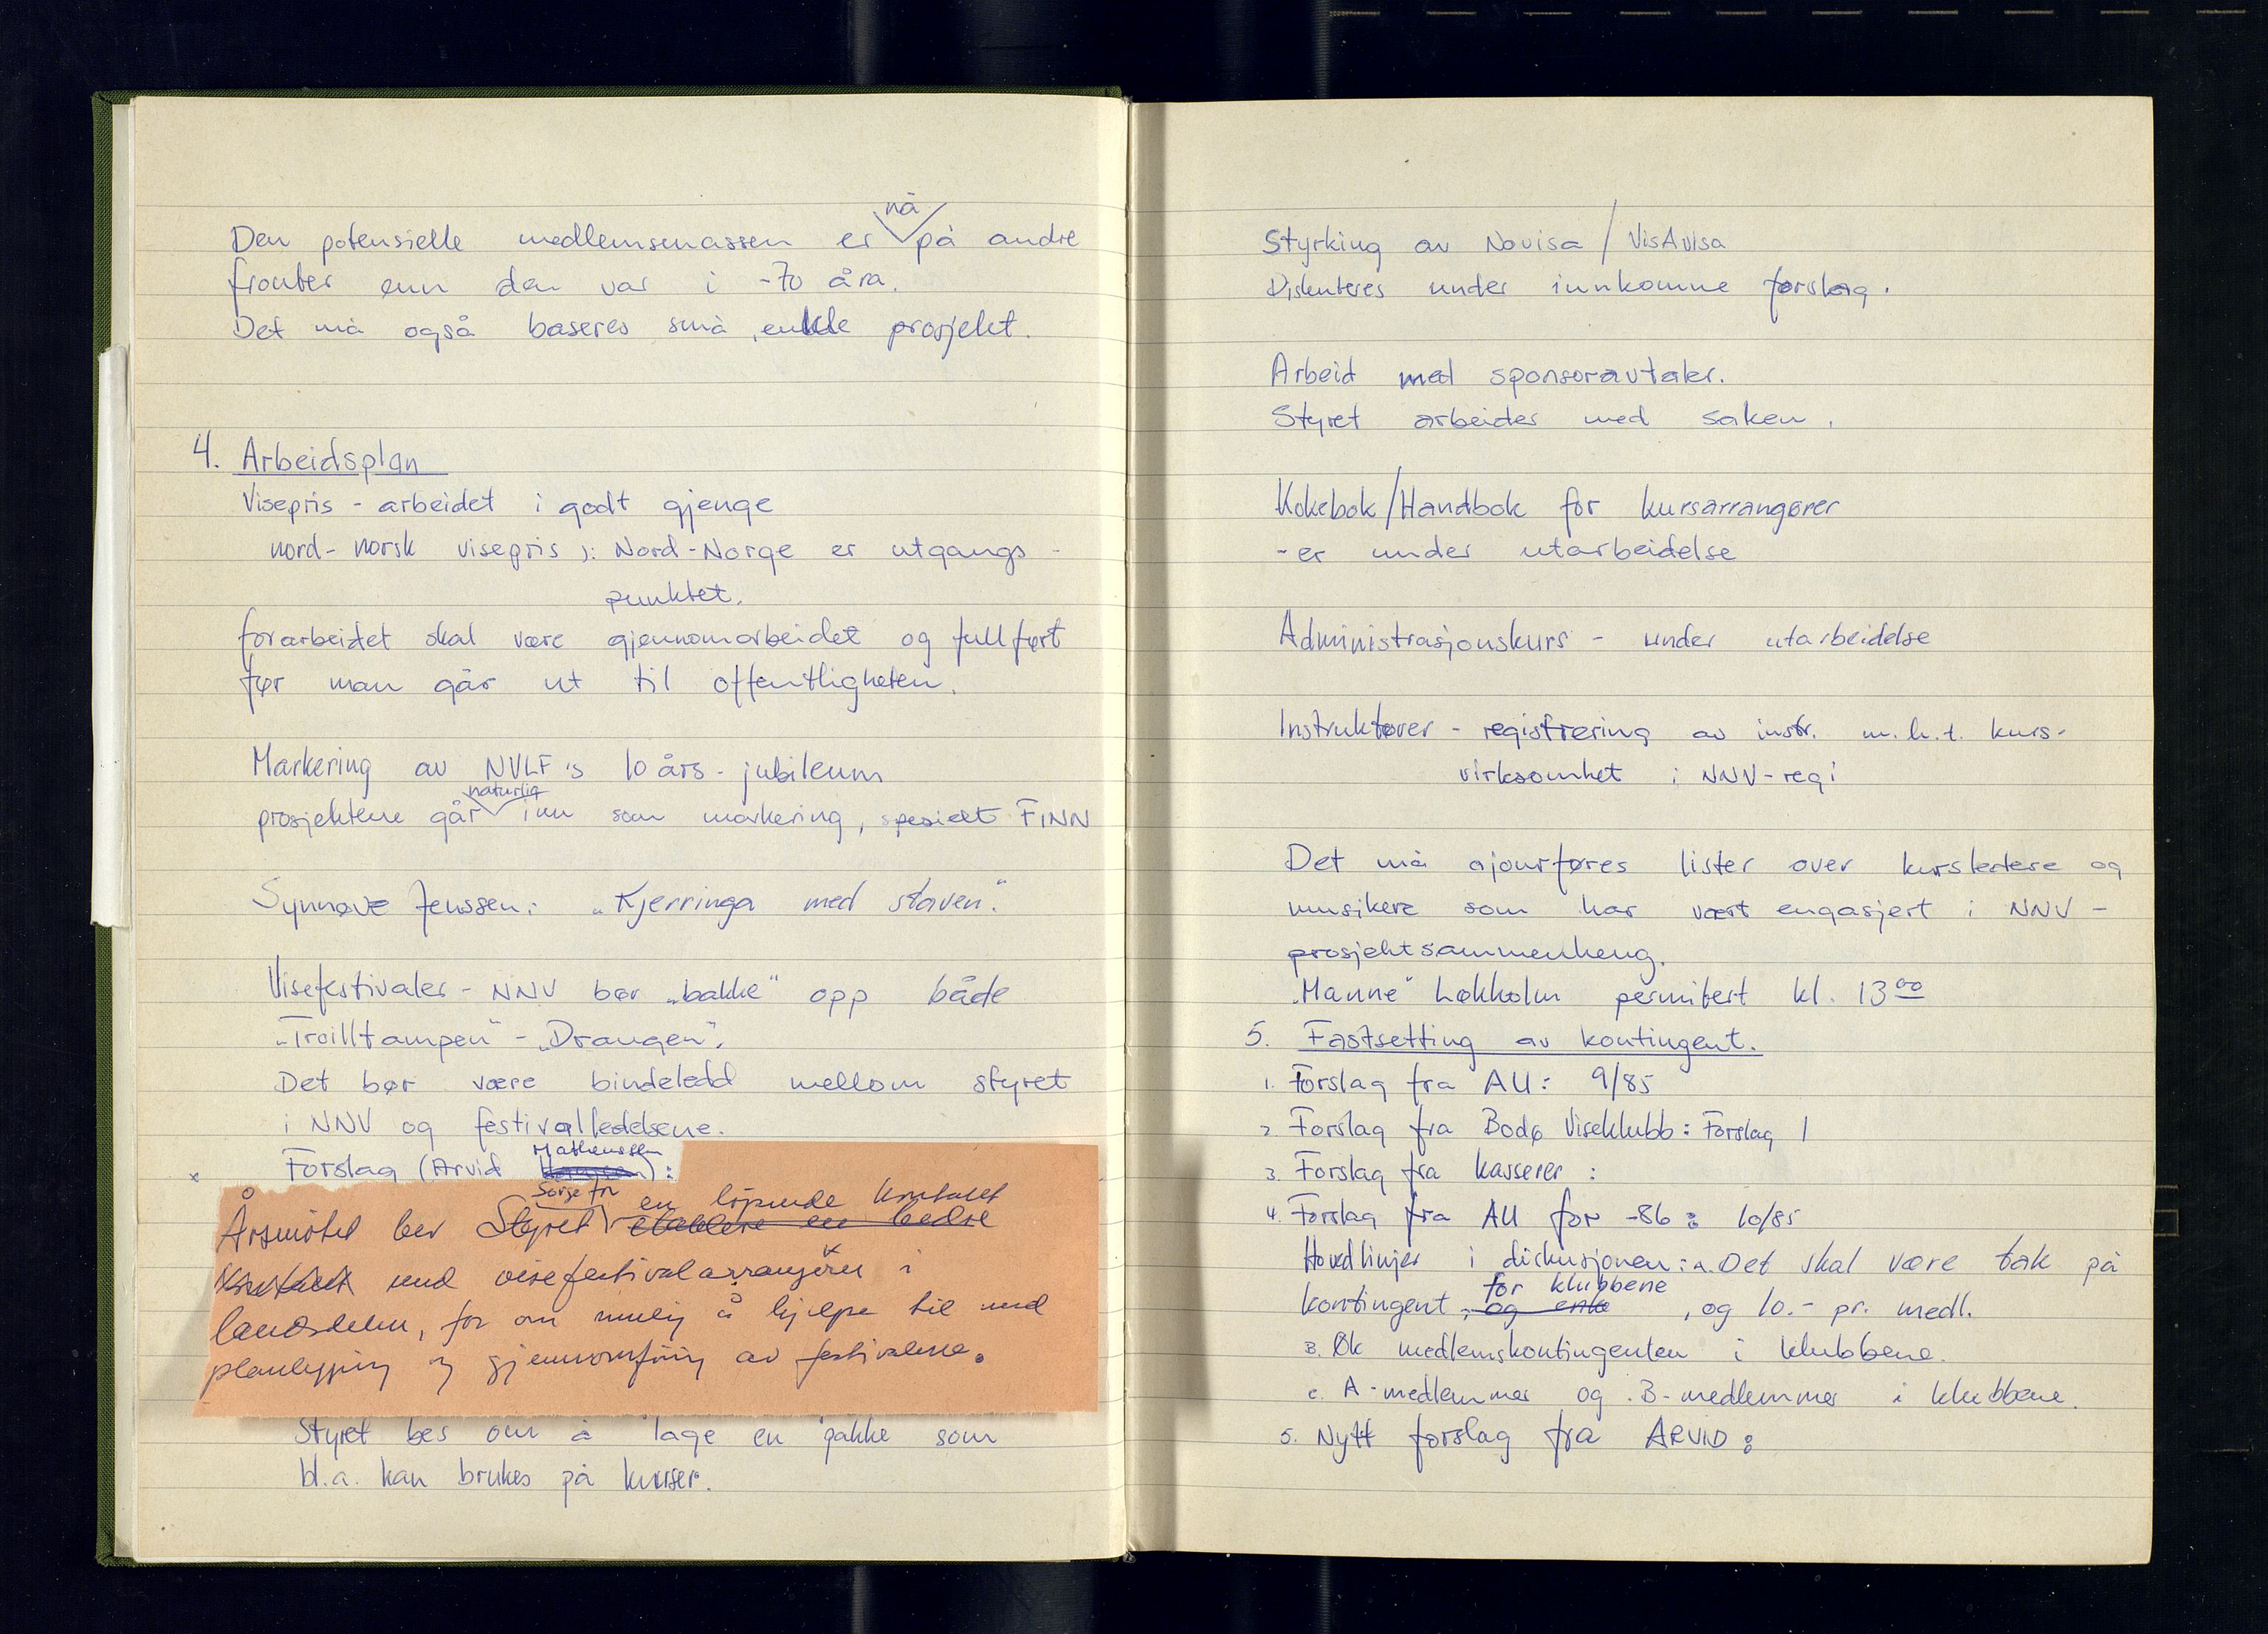 Den potensielle medlemsmassen er nå på andre
fronter enn den var i -70 åra.
Det må også baseres små, enkle prosjekt.
4. Arbeidsplan
Visepris - arbeidet i godt gjenge
nord-norsk visepris ): Nord-Norge er utgangs-
punktet.
forarbeidet skal være gjennomarbeidet og fullført
før man går ut til offentligheten.
Markering av NVLF's 10 års-jubileum
prosjektene går naturlig inn som markering, spesielt FINN
Synnøve Jenssen: „Kjerringa med staven".
Visefestivaler - NNV bør „bakke" opp både
„Trolltampen" - „Draugen".
Det bør være bindeledd mellom styret
i NNV og festivalledelsene.
x Forslag (Arvid Hansen Mathenssen):
Årsmötet ber Styret sørge for etablere en bedre en löpende kontakt
kontakt med visefestivalarrangörer i
landsdelen, for om mulig å hjelpe til med
planlegging og gjennomføring av festivalene.
Styret bes om å lage en pakke som
bl.a. kan brukes på kurser.
Styrking av Novisa / VisAvisa
Diskuteres under innkomne forslag.
Arbeid med sponsoravtaler.
Styret arbeider med saken.
Kokebok/Handbok for kursarrangører
- er under utarbeidelse
Administrasjonskurs - under utarbeidelse
Instruktører - registrering av instr. m.h.t. kurs-
virksomhet i NNV-regi
Det må ajourføres lister over kursledere og
musikere som har vært engasjert i NNV-
prosjektsammenheng.
„Manne" Løkholm permitert kl. 13 00
5. Fastsetting av kontingent.
1. Forslag fra AU: 9/85
2 Forslag fra Bodø Viseklubb: Forslag 1
3. Forslag fra kasserer :
4. Forslag fra AU for -86: 10/85
Hovedlinjer i diskusjonen: A. Det skal være tak på
kontingent, og enke for klubbene, og 10.- pr. medl.
B. Øk medlemskontingenten i klubbene.
C. A-medlemmer og B-medlemmer i klubbene.
5. Nytt forslag fra ARVID: